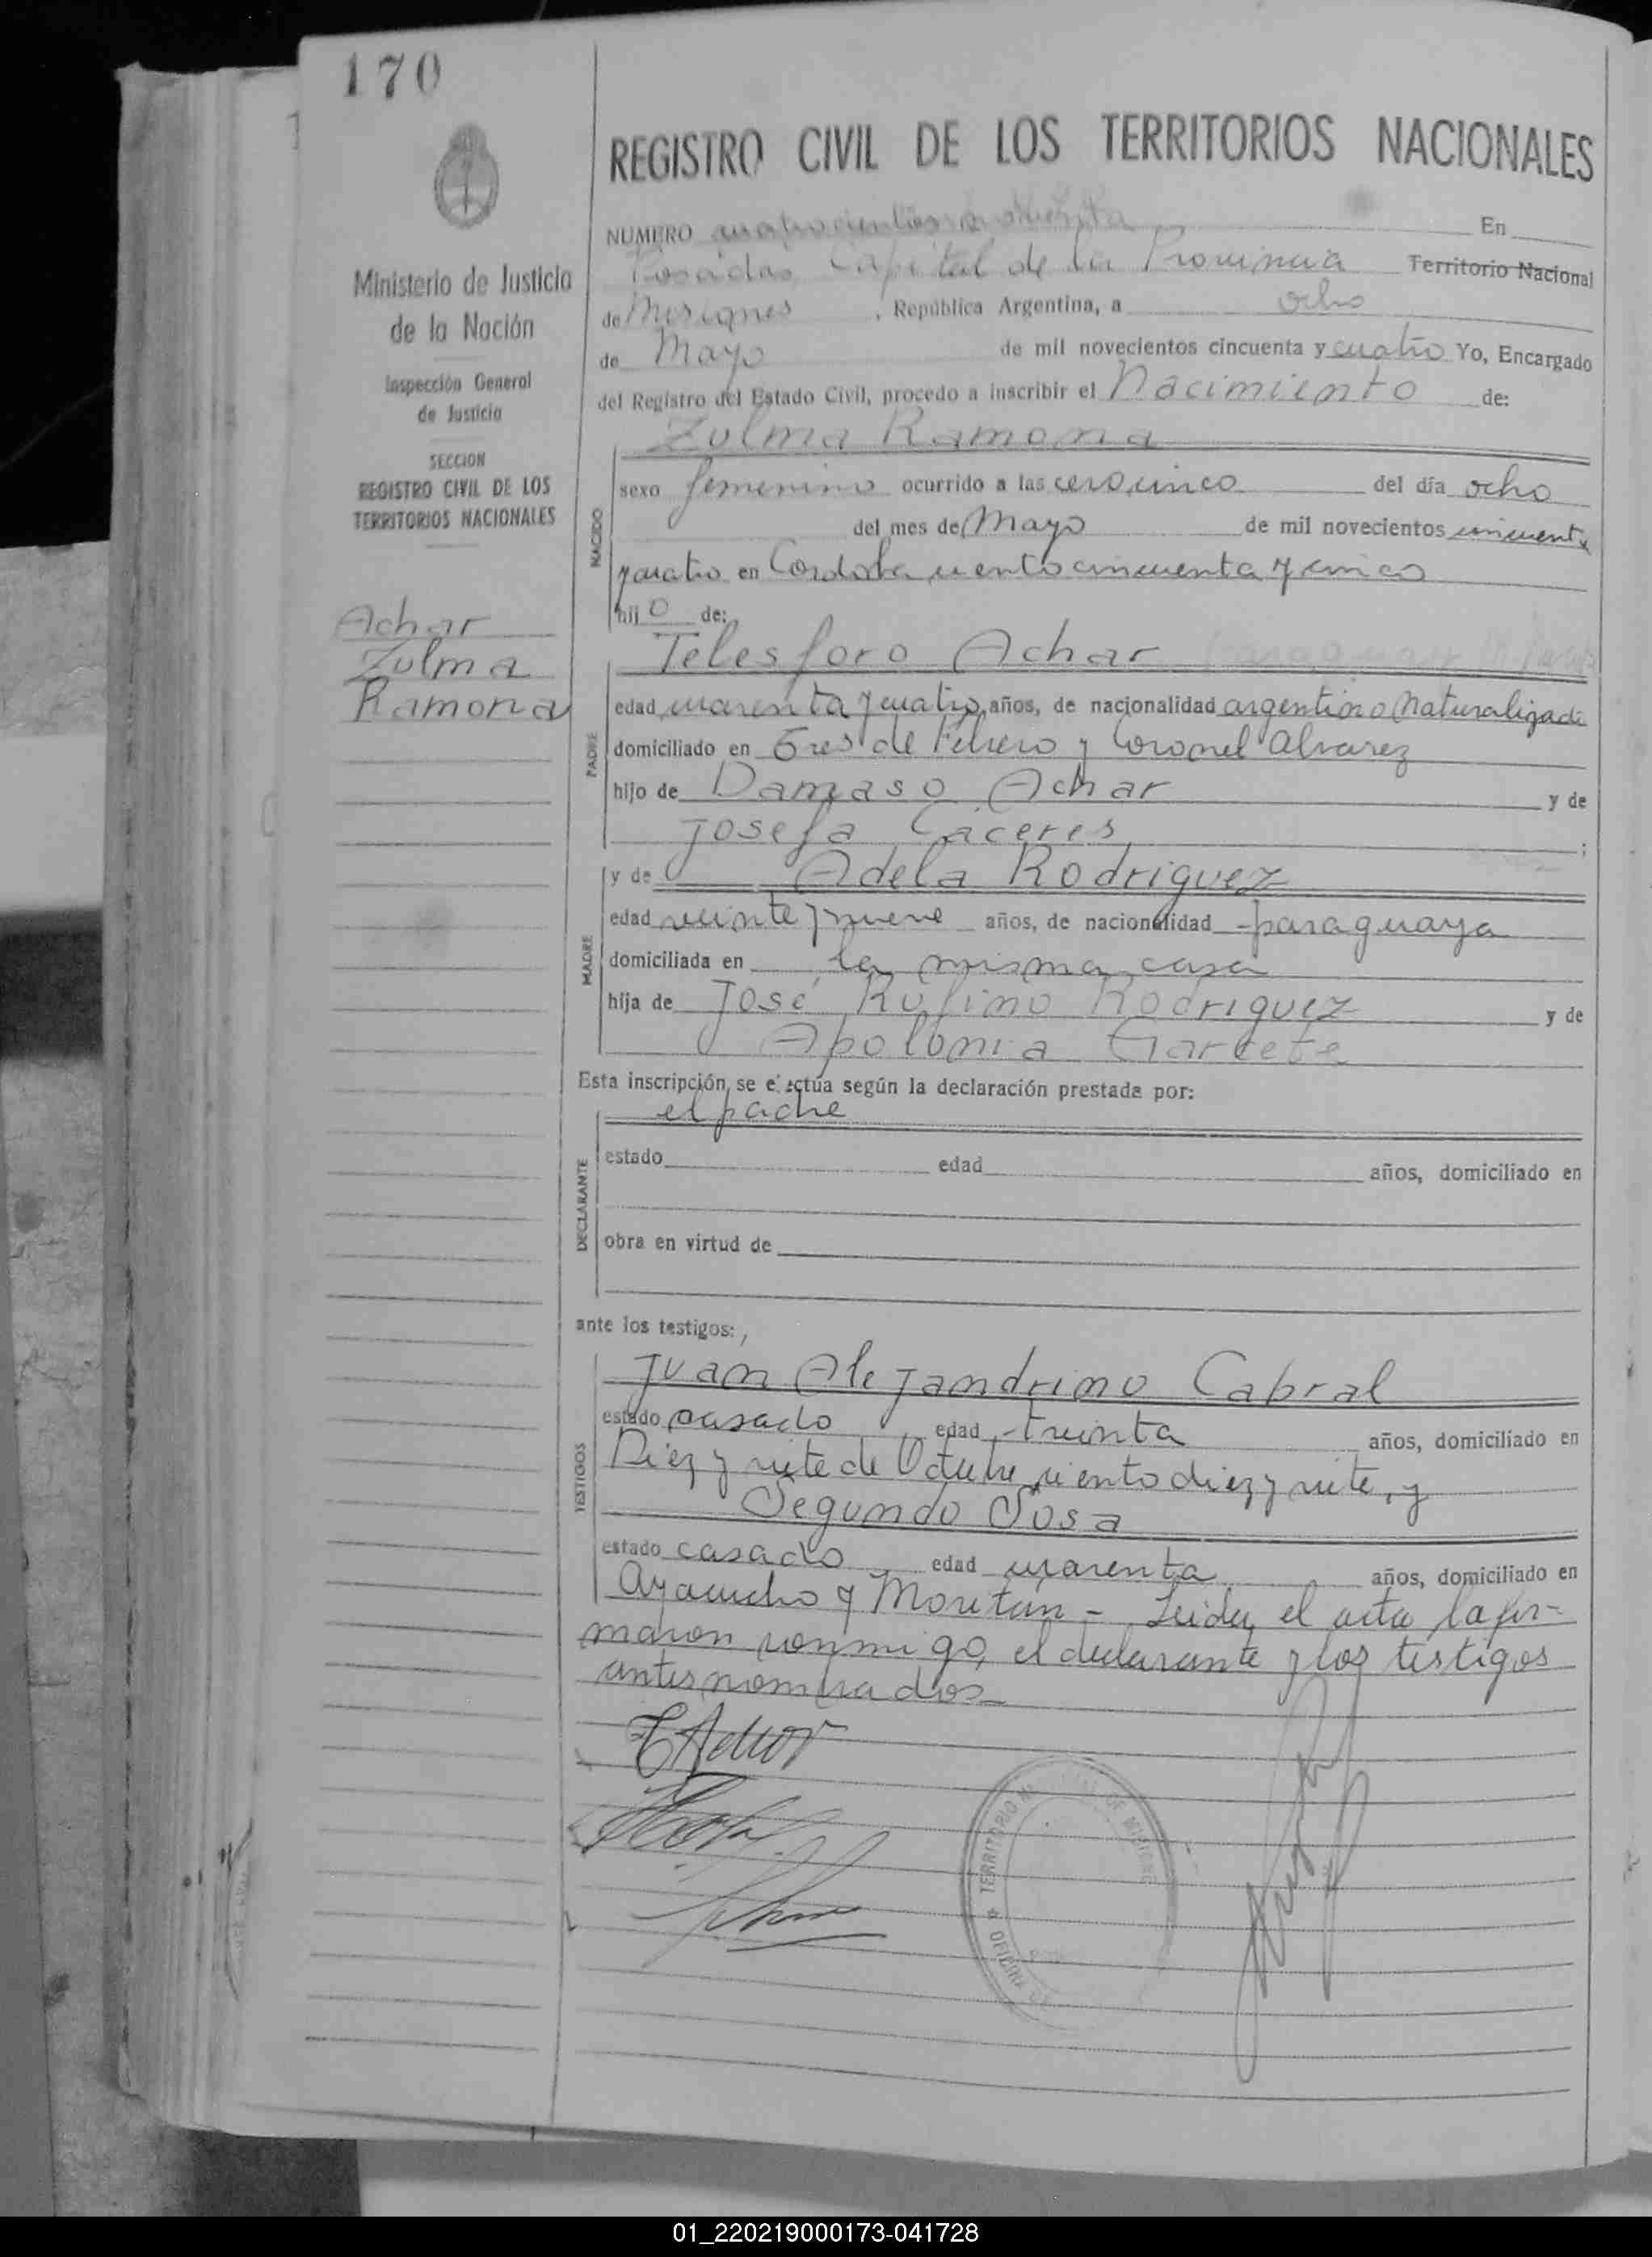 170
REGISTRO CIVIL DE LOS TERRITORIOS NACIONALES
Ministerio de Justicia
de la Nación
Inspección General
de Justicia
SECCION
REGISTRO CIVIL DE LOS
TERRITORIOS NACIONALES
Achar
Zulma
Ramona
NUMERO cuatrocientos En
Posadas, Capital de la Provincia Territorio Nacional
de Misiones, República Argentina, a ocho
de Mayo de mil novecientos cincuenta y cuatro Yo, Encargado
del Registro del Estado Civil, procedo a inscribir el Nacimiento de:
Zulma Ramona
NACIDO
sexo femenino ocurrido a las cero cinco del día ocho
del mes de Mayo de mil novecientos cincuenta
y cuatro en Cordoba ciento cincuenta y cinco
hijo de:
Telesforo Achar
PADRE
edad cuarenta y cuatro años, de nacionalidad argentino Naturalizado
domiciliado en Tres de Febrero y Coronel Alvarez
hijo de Damaso Achar y de
Josefa Caceres ;
y de Adela Rodriguez
MADRE
edad veinte y nueve años, de nacionalidad paraguaya
domiciliada en la misma casa
hija de José Rufino Rodriguez y de
Apolonia Garcete
Esta inscripción, se efectúa según la declaración prestada por:
el padre
DECLARANTE
estado edad años, domiciliado en
obra en virtud de
ante los testigos:,
Juan Alejandrino Cabral
TESTIGOS
estado casado edad treinta años, domiciliado en
Diez y siete de Octubre ciento diez y siete, y
Segundo Sosa
estado casado edad cuarenta años, domiciliado en
Ayacucho y Moritan - Leida el acta la fir-
maron conmigo, el declarante y los testigos
antes nombrados_
TAchar
TERRITORIO DE MISIONES
OFICINA
01_220219000173-041728